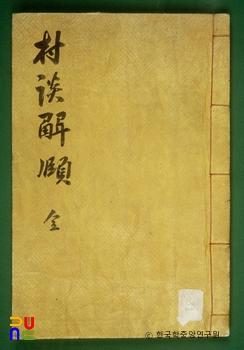 村談解頤
全
ⓒ 한국학중앙연구원